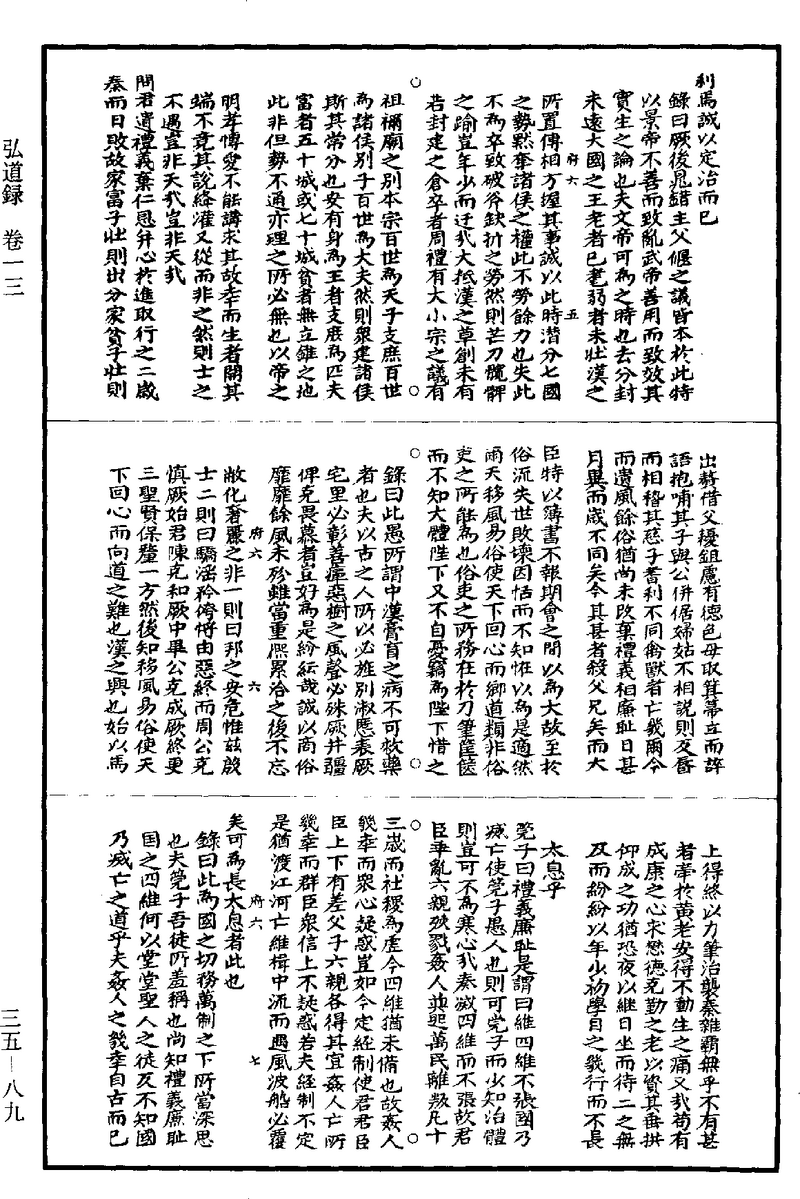 弘道録　卷一三
三五－八九
利焉誠以定治而已
錄曰厥後晁錯主父偃之議皆本於此特
以景帝不善而致亂武帝善用而致效其
實生之論也夫文帝可為之時也去分封
未遠大國之王老者已耄弱者未壯漢之
府六　五
所置傅相方握其事誠以此時潛分七國
之勢默奪諸侯之權此不勞餘力也失此
不為卒致破斧缺折之勞然則芒刃髋髀
之喻豈年少而迂哉大抵漢之草創未有
若封建之倉卒者周禮有大小宗之議有
祖禰廟之别本宗百世為天子支庶百世
為諸侯别子百世為大夫然則眾建諸侯
斯其常分也安有身為王者支庶為匹夫
富者五十城或七十城貧者無立錐之地
此非但勢不通亦理之所必無也以帝之
明孝博愛不能講求其故幸而生者開其
端不竟其說絳灌又從而非之然則士之
不遇豈非天哉豈非天哉
問君遺禮義棄仁恩并心於進取行之二歲
秦而日敗故家富子壯則出分家貧子壯則
出贅借父耰鉏慮有德色母取箕帚立而誶
語抱哺其子與公併倨婦姑不相說則反唇
而相稽其慈子耆利不同禽獸者亡幾爾今
而遺風餘俗猶尚未改棄禮義相廉恥日甚
月異而歲不同矣今其甚者殺父兄矣而大
臣特以薄書不報期會之間以為大故至於
俗流失世敗壞因恬而不知恠以為是適然
爾夫移風易俗使天下回心而鄉道類非俗
吏之所能為也俗吏之所務在於刀筆筐篋
而不知大體陛下又不自憂竊為陛下惜之
錄曰此愚所謂中漢膏肓之病不可救藥
者也夫以古之人所以必旌别淑慝表厥
宅里必彰善癉惡樹之風聲必殊厥井疆
俾克畏慕者豈好為是紛紜哉誠以商俗
靡靡餘風未殄雖當重熙累洽之後不忘
府六　六
敝化奢麗之非一則曰邦之安危惟茲殷
士二則曰驕淫矜侉將由惡終而周公克
慎厥始君陳克和厥中畢公克成厥終更
三聖賢保釐一方然後知移風易俗使天
下回心而向道之難也漢之興也始以馬
上得終以力筆治襲秦雜霸無乎不有甚
者帝於黃老安得不動生之痛又哉苟有
成康之心宋懋德克勤之老以資其垂拱
仰成之功猶恐夜以繼日坐而待二之無
及而紛紛以年少初學自之幾行而不長
太息乎
筦子曰禮義廉恥是謂曰維四維不張國乃
滅亡使筦子愚人也則可筦子而少知治體
則豈可不為寒心哉秦滅四維而不張故君
臣乖亂六親殃戮姦人並起萬民離叛凡十
三歲而社稷為虛今四維猶未備也故姦人
幾幸而衆心疑惑豈如今定經制使君君臣
臣上下有差父子六親各得其宜姦人亡所
幾幸而群臣衆信上不疑惑若夫經制不定
是猶渡江河亡維楫中流而遇風波船必覆
府六　七
矣可為長太息者此也
錄曰此為國之切務萬制之下所當深思
也夫筦子吾徒所羞稱也尚知禮義廉恥
国之四維何以堂堂聖人之徒反不知國
乃滅亡之道乎夫姦人之幾幸自古而已